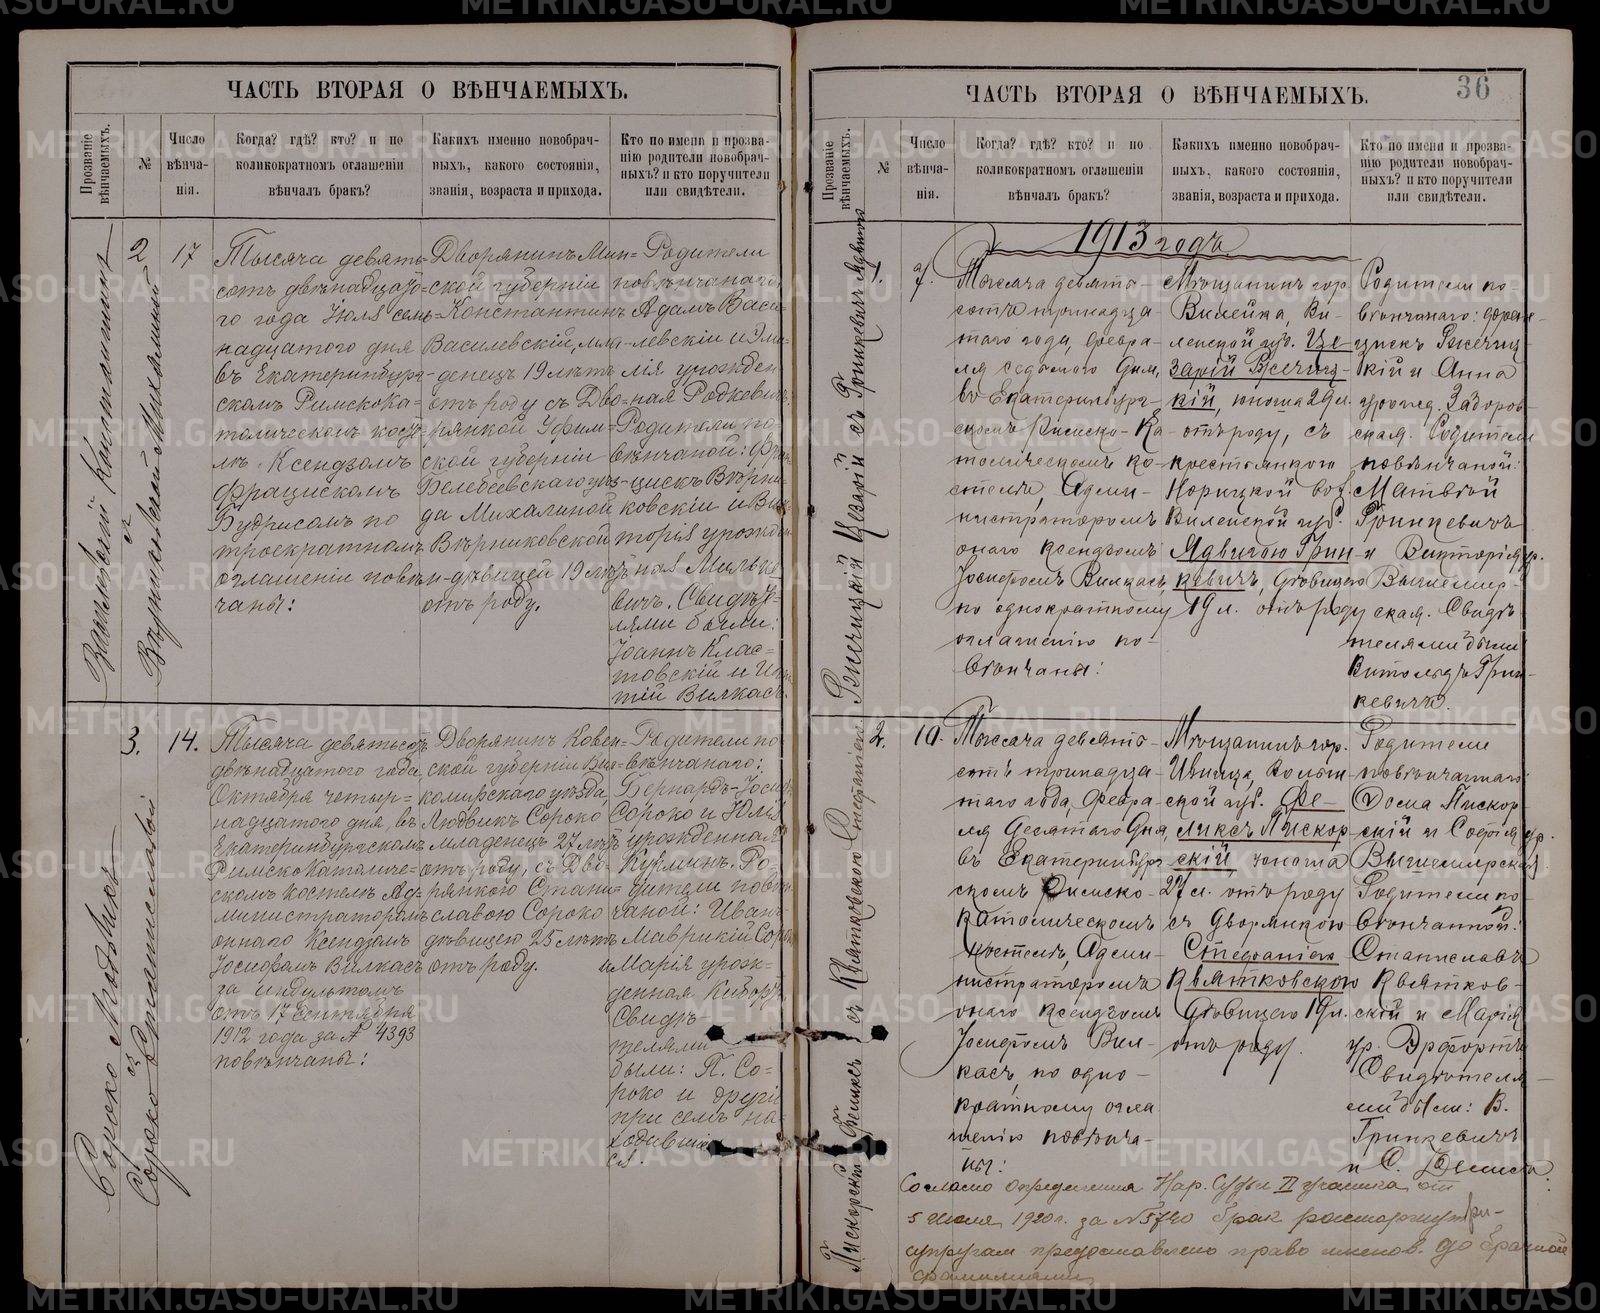 ЧАСТЬ ВТОРАЯ О ВѢНЧАЕМЫХЪ.
Прозваніе вѣнчаемыхъ.
№
Число вѣнча-нія.
Когда? гдѣ? кто? и по
коликократномъ оглашеніи
вѣнчалъ бракъ?
Какихъ именно новобрач-
ныхъ, какого состоянія,
званія, возраста и прихода.
Кто по имени и прозва-
нію родители новобрач-
ныхъ? и кто поручители
или свидѣтели.
Василевскій Константинъ
съ
Вѣрниковской Михалиной
2
17
Тысяча девять=
сотъ двѣнадцато=
го года Іюля сем=
надцатого дня
въ Екатеринбург=
скомъ РимскоКа=
толическомъ косте=
лѣ Ксендзомъ
Фрацискомъ
Будрисомъ по
троекратномъ
оглашеніи повѣн-
чаны:
Дворянинъ Мин=
ской губерніи
Константинъ
Василевскій, мла-
денецъ 19 лѣтъ
отъ роду съ Дво=
рянкой Уфим=
ской губерніи
Белебеевскаго уѣз-
да Михалиной
Вѣрниковской
дѣвицей 19 лѣтъ
отъ роду.
Родители
повѣнчаного,
Адамъ Васи=
левскіи и Эми
лія урожден
ная Родкевичъ.
Родители по=
вѣнчаной: Фран
цискъ Вѣрни=
ковскіи и Вик
торія урожден
ная Мильке
вичъ. Свидѣте=
лями были:
Іоаннъ Клас=
товскій и Игн
тій Вилкасъ.
Сороко Людвикъ
съ
Сороко Станиславой
3.
14.
Тысяча девятьсотъ
двѣнадцатого года
Октября четыр=
надцатого дня, въ
Екатеринбургскомъ
Римскокатоличе=
скомъ костелѣ Ад=
министраторомъ
онного Ксендзомъ
Іосифомъ Вилкасъ
за индультомъ
отъ 17 Сентября
1912 года за № 4393
повѣнчаны:
Дворянинъ Ковен=
ской губерніи Вил=
комирскаго уѣзда,
Людвикъ Сороко
младенецъ 27 лѣтъ
отъ роду, съ Дво=
рянкою Стани=
славою Сороко
дѣвицею 25 лѣтъ
отъ роду.
Родители по
вѣнчаного:
Бернардъ-Іосифъ
Сороко и Юлія
урожденная
Курминъ. Ро=
дители повѣн
чаной: Иванъ
Маврикій Соро
и Марія урож=
денная Киборт
Свидѣ-
телями
были: П. Со=
роко и другіе
при семъ на=
ходившіе
ся.
ЧАСТЬ ВТОРАЯ О ВѢНЧАЕМЫХЪ.
36
Прозваніе вѣнчаемыхъ.
№
Число вѣнча-нія.
Когда? гдѣ? кто? и по
коликократномъ оглашеніи
вѣнчалъ бракъ?
Какихъ именно новобрач-
ныхъ, какого состоянія,
званія, возраста и прихода.
Кто по имени и прозва-
нію родители новобрач-
ныхъ? и кто поручители
или свидѣтели.
1913 годъ.
Ржечицкій Цезарій съ Гринкевичъ Ядвигою
1.
7.
Тысяча девять-
сотъ тринадца-
таго года, Февра-
ля седьмого дня,
въ Екатеринбург-
скомъ Римско-Ка-
толическомъ ко-
стелѣ, Админи-
нистраторомъ
онаго ксендзомъ
Іосифомъ Вилкасъ,
по однократному
оглашенію по-
вѣнчаны:
Мѣщанинъ гор.
Вилейка, Ви-
ленской губ. Це-
зарій Ржечиц-
кій, юноша 29 л.
отъ роду, съ
крестьянкою
Норицкой вол.
Виленской губ.
Ядвигою Грин
кевичъ, дѣвицею
19 л. отъ роду
Родители по-
вѣнчаного:
цискъ Ржечиц-
кій и Анна
урожд. Задоров-
ская. Родители
повѣнчаной:
Матвѣй
Гринкевичъ
и Викторія ур.
Вышемир-
ская. Свидѣ
телями были
Витольдъ Грин-
кевичъ.
Пискорскій Феликсъ съ Квятковскою Стефаніею
2.
10.
Тысяча девять-
сотъ тринадца-
таго года, Февра-
ля Десятаго дня,
въ Екатеринбург
скомъ Римско-
католическомъ
костелѣ, Админи-
нистраторомъ
онаго ксендзомъ
Іосифомъ Вил-
касъ, по одно-
кратному огла
шенію повѣнча-
ны:
Мѣщанинъ гор.
Ивница, Волын-
ской губ. Фе-
ликсъ Пискор
скій, юноша
27 л. отъ роду
съ дворянкою
Стефаніею
Квятковскою
дѣвицею 19 л.
отъ роду.
Родители
повѣнчаннаго:
Пискор-
скій и Софія ур.
Вышемирская
Родители по-
вѣнчанной:
Станиславъ
Квятков-
скій и Марія
ур. Эрфортъ
Свидѣтеля-
ми были: В.
Гринкевичъ
и С.
Согласно определения Нар. Судьи II участка от
5 июля 1920 г. за № 5740 брак расторгнут
супругам предоставлено право именов. добрачной
фамилиями
METRIKI.GASO-URAL.RU